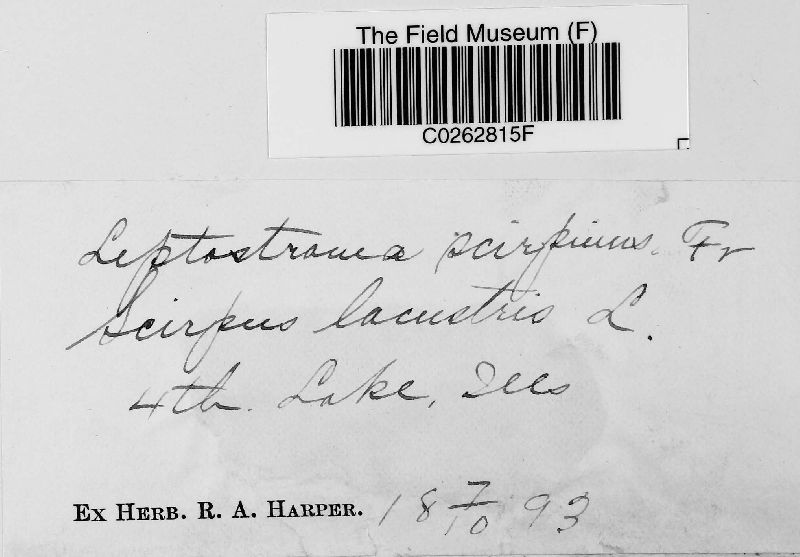 The Field Museum (F)
C0262815F
Leptostroma scirpinus. Fr
Scirpus lacustris L.
4th. Lake, Ills
Ex Herb. R. A. Harper. 18 7/10 93